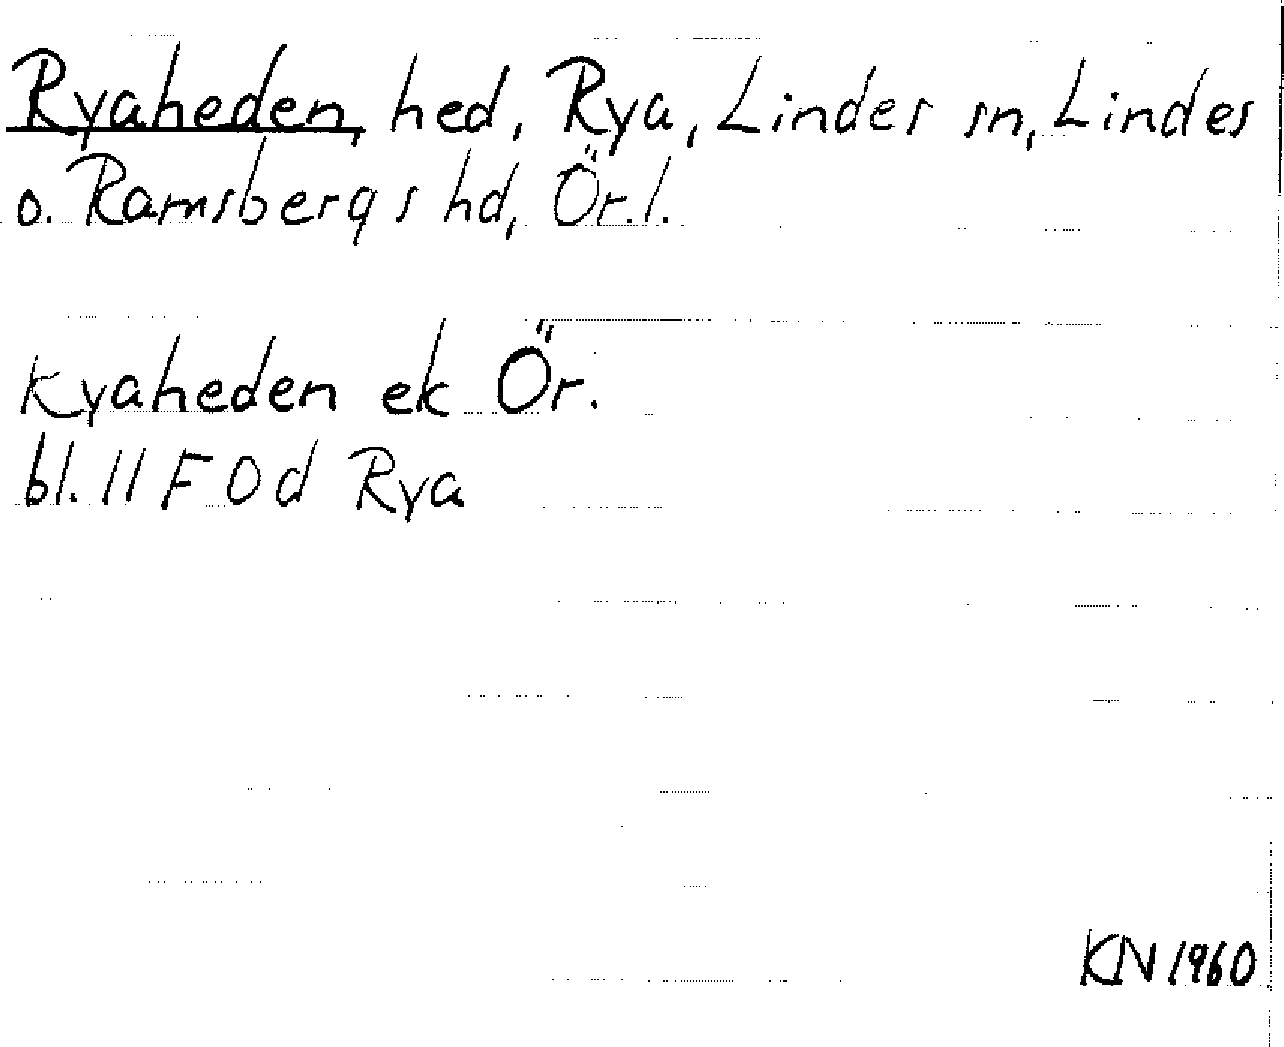 Ryaheden, hed, Rya, Lindes sn, Lindes
o. Ramsbergs hd, Ör. l.
Kyaheden ek Ör.
bl. 11 F 0 d Rya
KN 1960